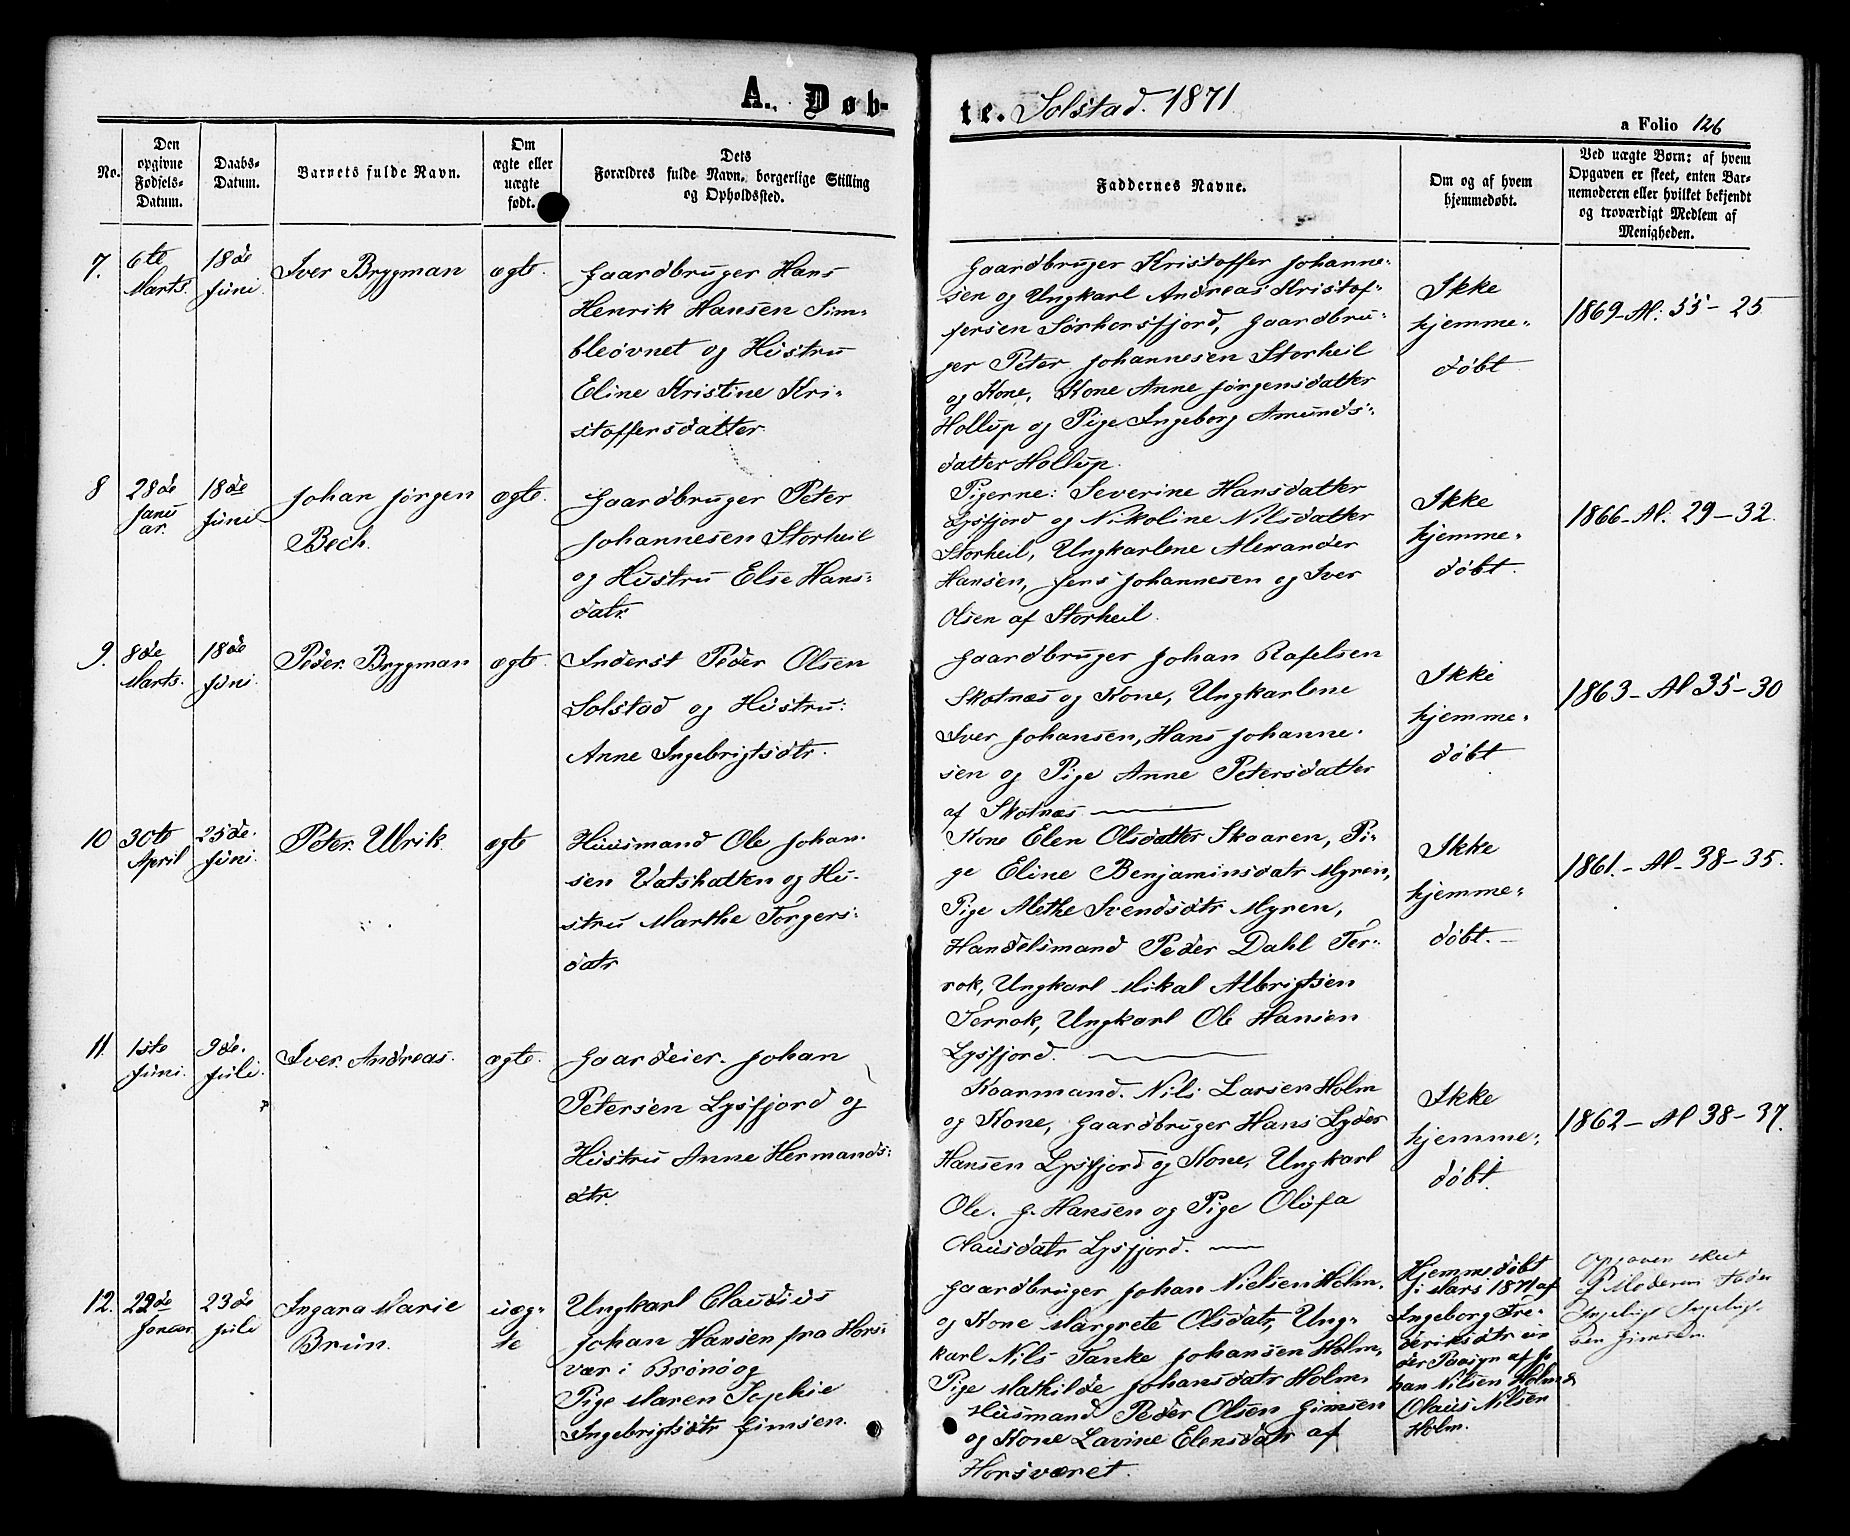 A. Døb-
te. Solstad. 1871
a Folio 126
No.
Den
opgivne
Fødsels-
Datum.
Daabs-
Datum.
Barnets fulde Navn.
Om
ægte eller
uægte
født.
Dets
Forældres fulde Navn, borgerlige Stilling
og Opholdssted.
Faddernes Navne.
Om og af hvem
hjemmedøbt.
Ved uægte Børn: af hvem
Opgaven er skeet, enten Bar-
nemoderen eller hvilket bekjendt
og troværdigt Medlem af
Menigheden.
7.
6te
Marts.
18de
Juni.
Iver Brygman
ægte.
Gaardbruger Hans
Henrik Hansen Sim-
bleøvnet og Hustru
Eline Kristine Kri-
stoffersdatter.
Gaardbruger Kristoffer Johanne-
sen og Ungkarl Andreas Kristof-
fersen Sørhorsfjord, Gaardbru-
ger Peter Johannesen Storheil
og Kone, Kone Anne Jørgensdatter
Hollup og Pige Ingeborg Amunds-
datter Hollup.
Ikke
hjemme-
døbt
1869-Al: 55-25
8
28de
Janu
ar.
18de
Juni
Johan Jørgen
Bech.
ægte.
Gaardbruger Peter
Johannesen Storheil
og Hustru Else Hans-
datr.
Pigerne: Severine Hansdatter
Lysfjord og Nikoline Nilsdatter
Storheil, Ungkarlene Alexander
Hansen, Jens Johannesen og Iver
Olsen af Storheil.
Ikke
hjemme-
døbt.
1866-Al. 29-32.
9.
8de
Marts.
18de
Juni.
Peder. Brygman
ægte.
Inderst Peder Olsen
Solstad og Hustru:
Anne Ingebrigtsdtr.
Gaardbruger Johan Rafelsen
Skotnæs og Kone, Ungkarlene
Iver Johansen, Hans Johanne-
sen og Pige Anne Petersdatter
af Skotnæs
Ikke
hjemme-
døbt
1863-Al 35-30
10
30te
April
25de.
Juni.
Peter. Ulrik.
ægte
Huusmand Ole Johan-
sen Vatshatten og Hu-
stru Marthe Torgers-
datr
Kone Elen Olsdatter Skaaren, Pi-
ge Eline Benjaminsdatr Myren,
Pige Alethe Svendsdtr Myren,
Handelsmand Peder Dahl Ter-
rok, Ungkarl Mikal Albrigtsen
Terrok, Ungkarl Ole Hansen
Lysfjord.
Ikke
hjemme-
døbt.
1861.-Al-38-35.
11.
1ste
Juni.
9de.
Juli.
Iver. Andreas.
ægte.
Gaardeier. Johan
Petersen Lysfjord og
Hustru Anne Hermands-
dtr.
Kaarmand. Nils Larsen Holm
og Kone, Gaardbruger Hans Lyder
Hansen Lysfjord og Kone, Ungkarl
Ole. J. Hansen og Pige Olufa
Olausdatr Lysfjord.
Ikke
hjemme-
døbt.
1862-Al 38-37.
12.
22de
Januar
23de
Juli
Ingara Marie
Bruun.
uæg-
te
Ungkarl Claudius
Johan Hansen fra Hors-
vær i Brønø og
Pige Maren Sophie
Ingebrigtsdtr Gimsen.
Gaardbruger Johan Nielsen Holm.
og Kone Margrete Olsdatr, Ung-
karl Nils Tanke Johansen Holm,
Pige Mathilde Johansdatr Holm
Husmand Peder Olsen Gimsen
og Kone Lavine Elensdatr af
Horsværet.
Hjemmedøbt
i Mars 1871 af
Ingeborg Fre-
deriksdtr un
der Paasyn af Jo
han Nilsen Holm &
Olaus Nilsen
Holm.
Opgaven skeet
Moderens Fader
Gimsen.